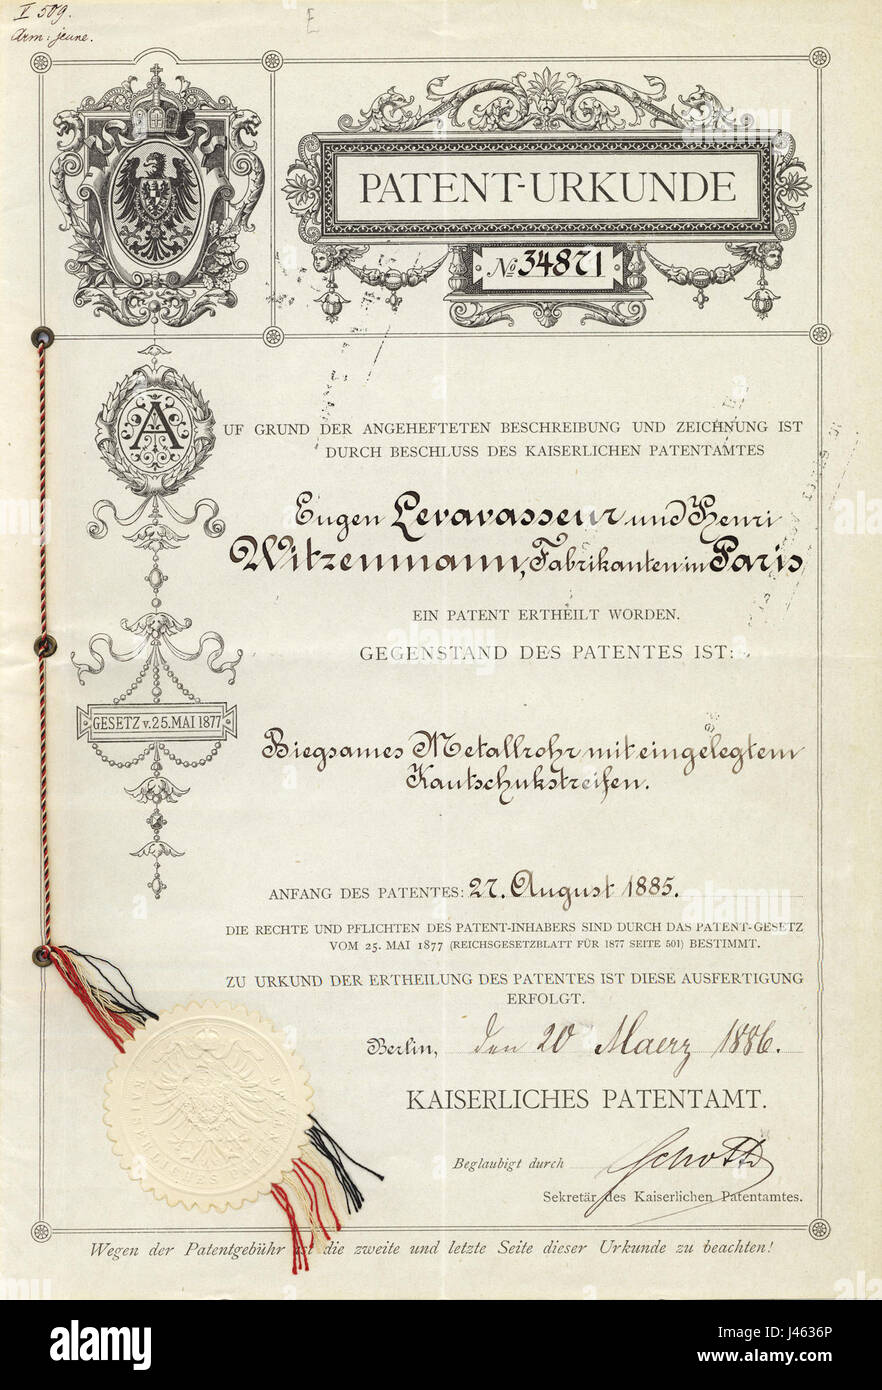 V 509.
Arm: jeune.
E
PATENT-URKUNDE
No 34871
A
UF GRUND DER ANGEHEFTETEN BESCHREIBUNG UND ZEICHNUNG IST
DURCH BESCHLUSS DES KAISERLICHEN PATENTAMTES
Eugen Levavasseur und Henri
Witzenmann, Fabrikanten in Paris
EIN PATENT ERTHEILT WORDEN.
GEGENSTAND DES PATENTES IST:
GESETZ v. 25. MAI 1877
Biegsames Metallrohr mit eingelegtem
Kautschukstreifen.
ANFANG DES PATENTES: 27. August 1885.
DIE RECHTE UND PFLICHTEN DES PATENT-INHABERS SIND DURCH DAS PATENT-GESETZ
VOM 25. MAI 1877 (REICHSGESETZBLATT FÜR 1877 SEITE 501) BESTIMMT.
ZU URKUND DER ERTHEILUNG DES PATENTES IST DIESE AUSFERTIGUNG
ERFOLGT.
Berlin, den 20 Maerz 1886.
KAISERLICHES PATENTAMT.
Beglaubigt durch Schottz
Sekretär des Kaiserlichen Patentamtes.
KAISERLICHES PATENTAMT
Wegen der Patentgebühr ist die zweite und letzte Seite dieser Urkunde zu beachten!
alamy
Image ID: J4636P
www.alamy.com